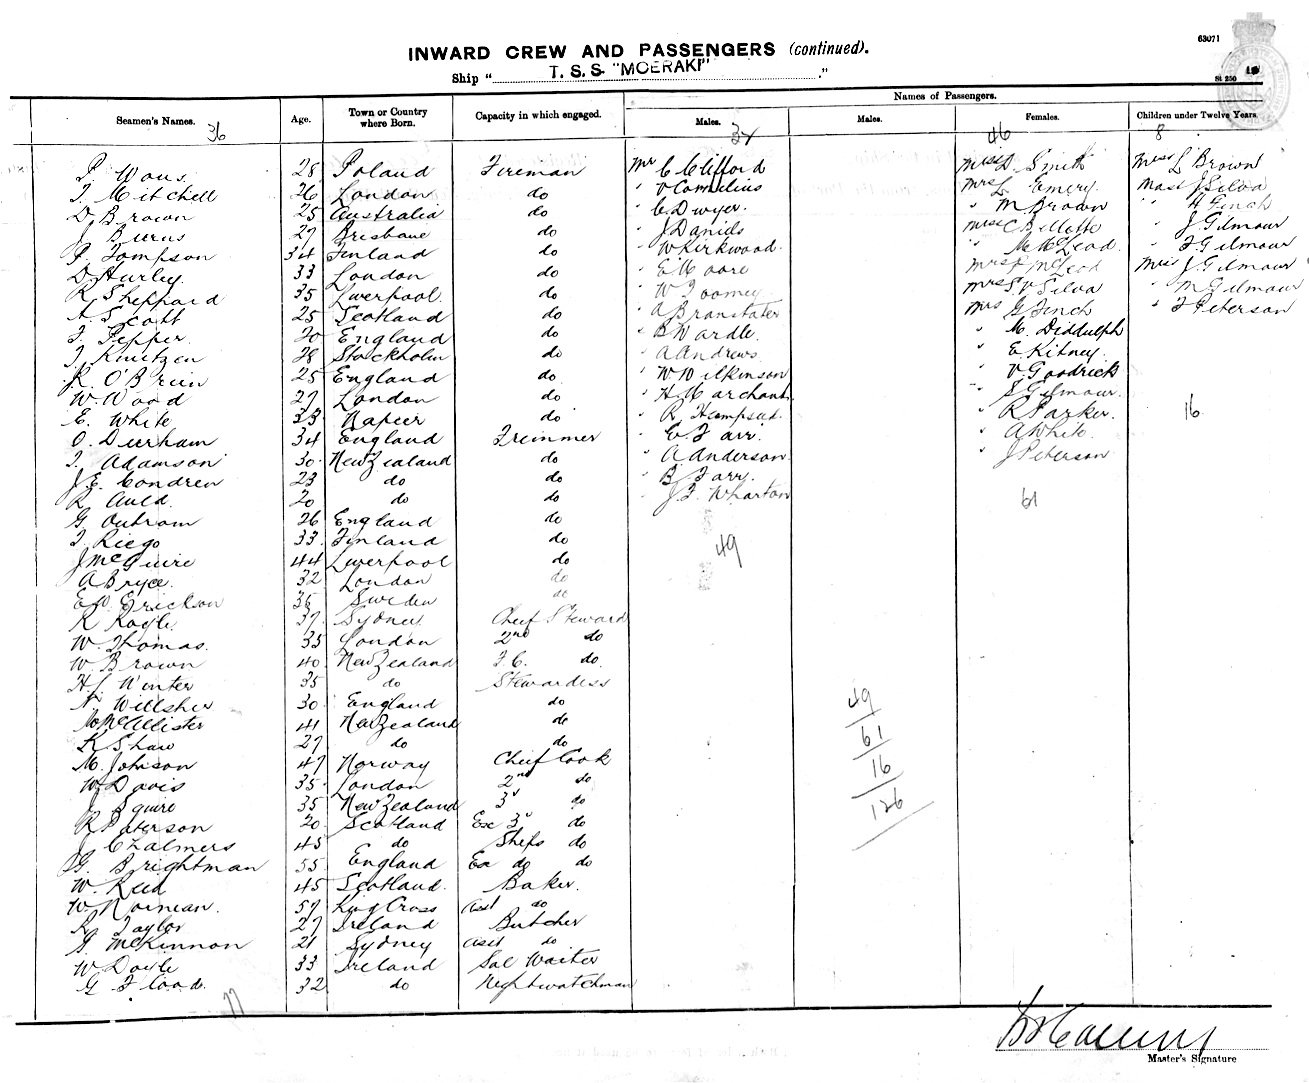 63071
INWARD CREW AND PASSENGERS (continued).
Ship " T. S. S. "MOERAKI" ."
St 250
Names of Passengers.
Seamen's Names. Age. Town or Country where Born. Capacity in which engaged. Males. Males. Females. Children under Twelve Years.
36 34 46 8
28 Poland Fireman Mr C Clifford Miss D Smith Miss L Brown
T. Mitchell 26 London do " V Cornelius Mrs L Emery Mast J Silva
D Brown 25 Australia do " C Dwyer. " M Brown " " H Finch
J Burns 27 Brisbane do " J Daniels Miss C Billotte " J Gilmour
P. Tompson 34 Finland do " W Kirkwood " McLeod " F Gilmour
D Hurley 33 London do " E Moore Mrs McLeod Miss J Gilmour
R Sheppard 35 Liverpool do " W Toomey Mrs S V Silva " M Gilmour
A Scott 25 Scotland do " A Branstater Mrs G Finch " F Peterson
T. Pepper 20 England do " B Wardle. " M. Diddulph
T Knutzen 28 Stockholm do " A Andrews " E Kitney
R. O'Brien 25 England do " W Wilkinson " V Goodrick
W Wood 27 London do " H Marchant " S Gilmour
E. White 33 Napier do " R Hempsed. " R Parker. 16
O. Durham 34 England Trimmer " E Farr. " A White
T. Adamson 30 New Zealand do " A Anderson " J Peterson
J. E. Condren 23 do do " B Farr.
R Auld. 20 do do " J. F. Wharton
G Outram 26 England do 61
T Riego 33 Finland do 49
J McGuire 44 Liverpool do
A Bryce. 32 London do
E W Erickson 35 Sweden do
R Kayle 37 Sydney Chief Steward
W. Thomas. 35 London 2nd do
W Brown 40 New Zealand F. C. do
H J Winter 35 do Stewardess
N. Willsher 30 England do
McAllister 41 New Zealand do
K Shaw 27 do do
M. Johnson 47 Norway Chief Cook
W Davis 35 London 2nd do
J Squire 35 New Zealand 3d do
R Paterson 20 Scotland Ex 3d do
J Chalmers 45 do Ships do
G. Brightman 55 England Ex do do
W. Reid 45 Scotland Baker.
W. Norman. 57 King Cross Asst do
R Taylor 27 Ireland Butcher
G. McKinnon 21 Sydney Asst do
W Doyle 33 Ireland Sal Waiter
G Flood. 32 do Nightwatchman
49
61
16
126
77
Master's Signature